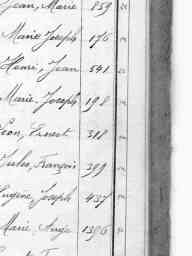 Jean, Marie 859 "
Marie Joseph 176 "
Henri, Jean 541 "
Marie, Joseph 198 "
Léon, Ernest 318 "
Jules, François 399 "
Eugène, Joseph 437 "
Marie, Ange 1396 "